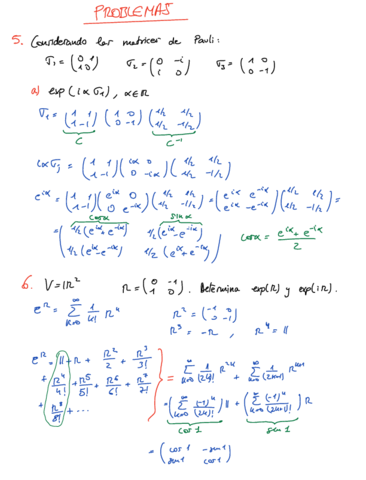 PROBLEMAS
5. Considerando las matrices de Pauli:
σ₁ = (0 1; 1 0)   σ₂ = (0 -i; i 0)   σ₃ = (1 0; 0 -1)
a) exp(iασ₁), α∈ℝ
σ₁ = (1 1; 1 -1) (1 0; 0 -1) (1/2 1/2; 1/2 -1/2)
C   C⁻¹
iασ₁ = (1 1; 1 -1) (iα 0; 0 -iα) (1/2 1/2; 1/2 -1/2)
e^{iα} = (1 1; 1 -1) (e^{iα} 0; 0 e^{-iα}) (1/2 1/2; 1/2 -1/2) = (e^{iα} e^{-iα}; e^{iα} -e^{-iα}) (1/2 1/2; 1/2 -1/2) =
cosα   sinα
= (1/2(e^{iα}+e^{-iα}) 1/2(e^{iα}-e^{-iα}); 1/2(e^{iα}-e^{-iα}) 1/2(e^{iα}+e^{-iα}))   cosα = (e^{iα}+e^{-iα})/2
6. V=ℝ²   R = (0 -1; 1 0). Determina exp(R) y exp(iR).
e^R = Σ_{k=0}^∞ 1/k! R^k   R² = (-1 0; 0 -1)
R³ = -R, R⁴ = 𝟙
e^R = 𝟙 + R + R²/2 + R³/3!
+ R⁴/4! + R⁵/5! + R⁶/6! + R⁷/7!
+ R⁸/8! + ...
= Σ_{k=0}^∞ 1/(2k)! R^{2k} + Σ_{k=0}^∞ 1/(2k+1)! R^{2k+1}
= (Σ_{k=0}^∞ (-1)^k/(2k)!) 𝟙 + (Σ_{k=0}^∞ (-1)^k/(2k+1)!) R
cos 1   sin 1
= (cos 1 -sin 1; sin 1 cos 1)